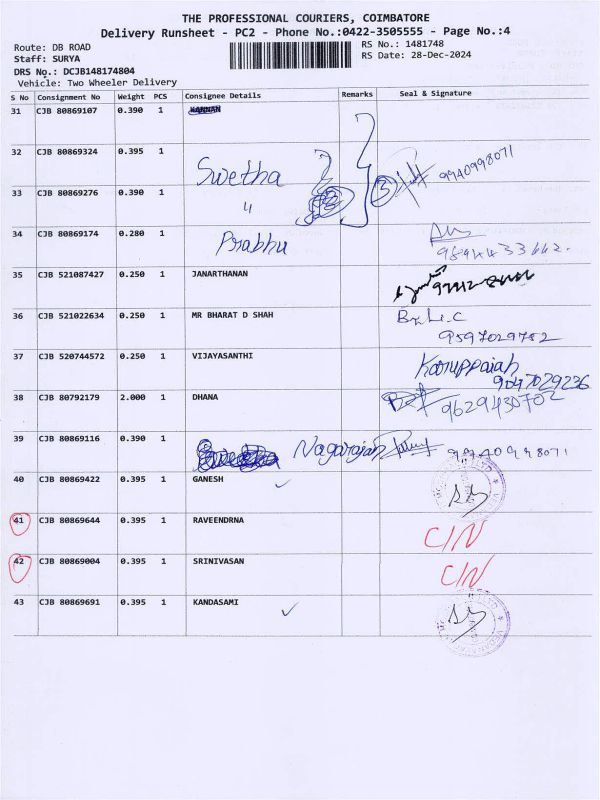 THE PROFESSIONAL COURIERS, COIMBATORE
Delivery Runsheet - PC2 - Phone No.:0422-3505555 - Page No.:4
Route: DB ROAD RS No.: 1481748
Staff: SURYA RS Date: 28-Dec-2024
DRS No.: DCJB148174804
Vehicle: Two Wheeler Delivery
S No Consignment No Weight PCS Consignee Details Remarks Seal & Signature
31 CJB 80869107 0.390 1 KANNAN
32 CJB 80869324 0.395 1 Swetha 9940998071
33 CJB 80869276 0.390 1 " 3
34 CJB 80869174 0.280 1 Prabhu
35 CJB 521087427 0.250 1 JANARTHANAN
36 CJB 521022634 0.250 1 MR BHARAT D SHAH
9597029782
37 CJB 520744572 0.250 1 VIJAYASANTHI Karuppaiah
9047029236
38 CJB 80792179 2.000 1 DHANA 9629430702
39 CJB 80869116 0.390 1 Nagarajan 9940998071
40 CJB 80869422 0.395 1 GANESH ✓
41 CJB 80869644 0.395 1 RAVEENDRNA C/N
42 CJB 80869004 0.395 1 SRINIVASAN C/N
43 CJB 80869691 0.395 1 KANDASAMI ✓